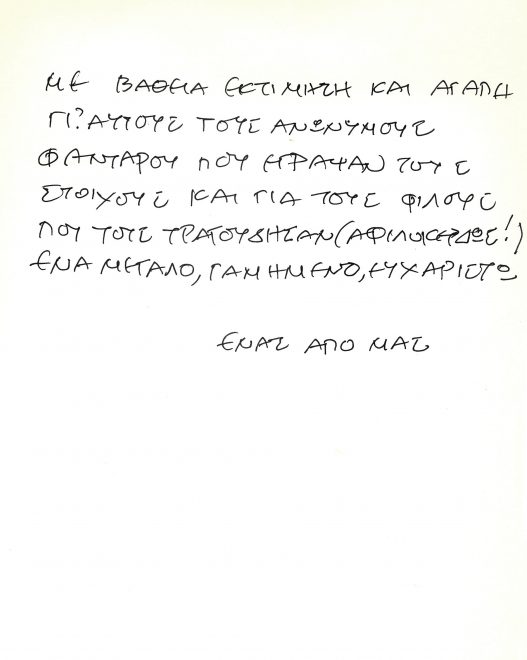 ΜΕ ΒΑΘΕΙΑ ΕΚΤΙΜΙΣΗ ΚΑΙ ΑΓΑΠΗ
ΓΙ? ΑΥΤΟΥΣ ΤΟΥΣ ΑΝΩΝΥΜΟΥΣ
ΦΑΝΤΑΡΟΥ ΠΟΥ ΕΓΡΑΨΑΝ ΤΟΥΣ
ΣΤΟΙΧΟΥΣ ΚΑΙ ΓΙΑ ΤΟΥΣ ΦΙΛΟΥΣ
ΠΟΥ ΤΟΥΣ ΤΡΑΓΟΥΔΗΣΑΝ (ΑΦΙΛΟΚΕΡΔΩΣ!)
ΕΝΑ ΜΕΓΑΛΟ, ΓΑΜΗΜΕΝΟ, ΕΥΧΑΡΙΣΤΩ
ΕΝΑΣ ΑΠΟ ΜΑΣ